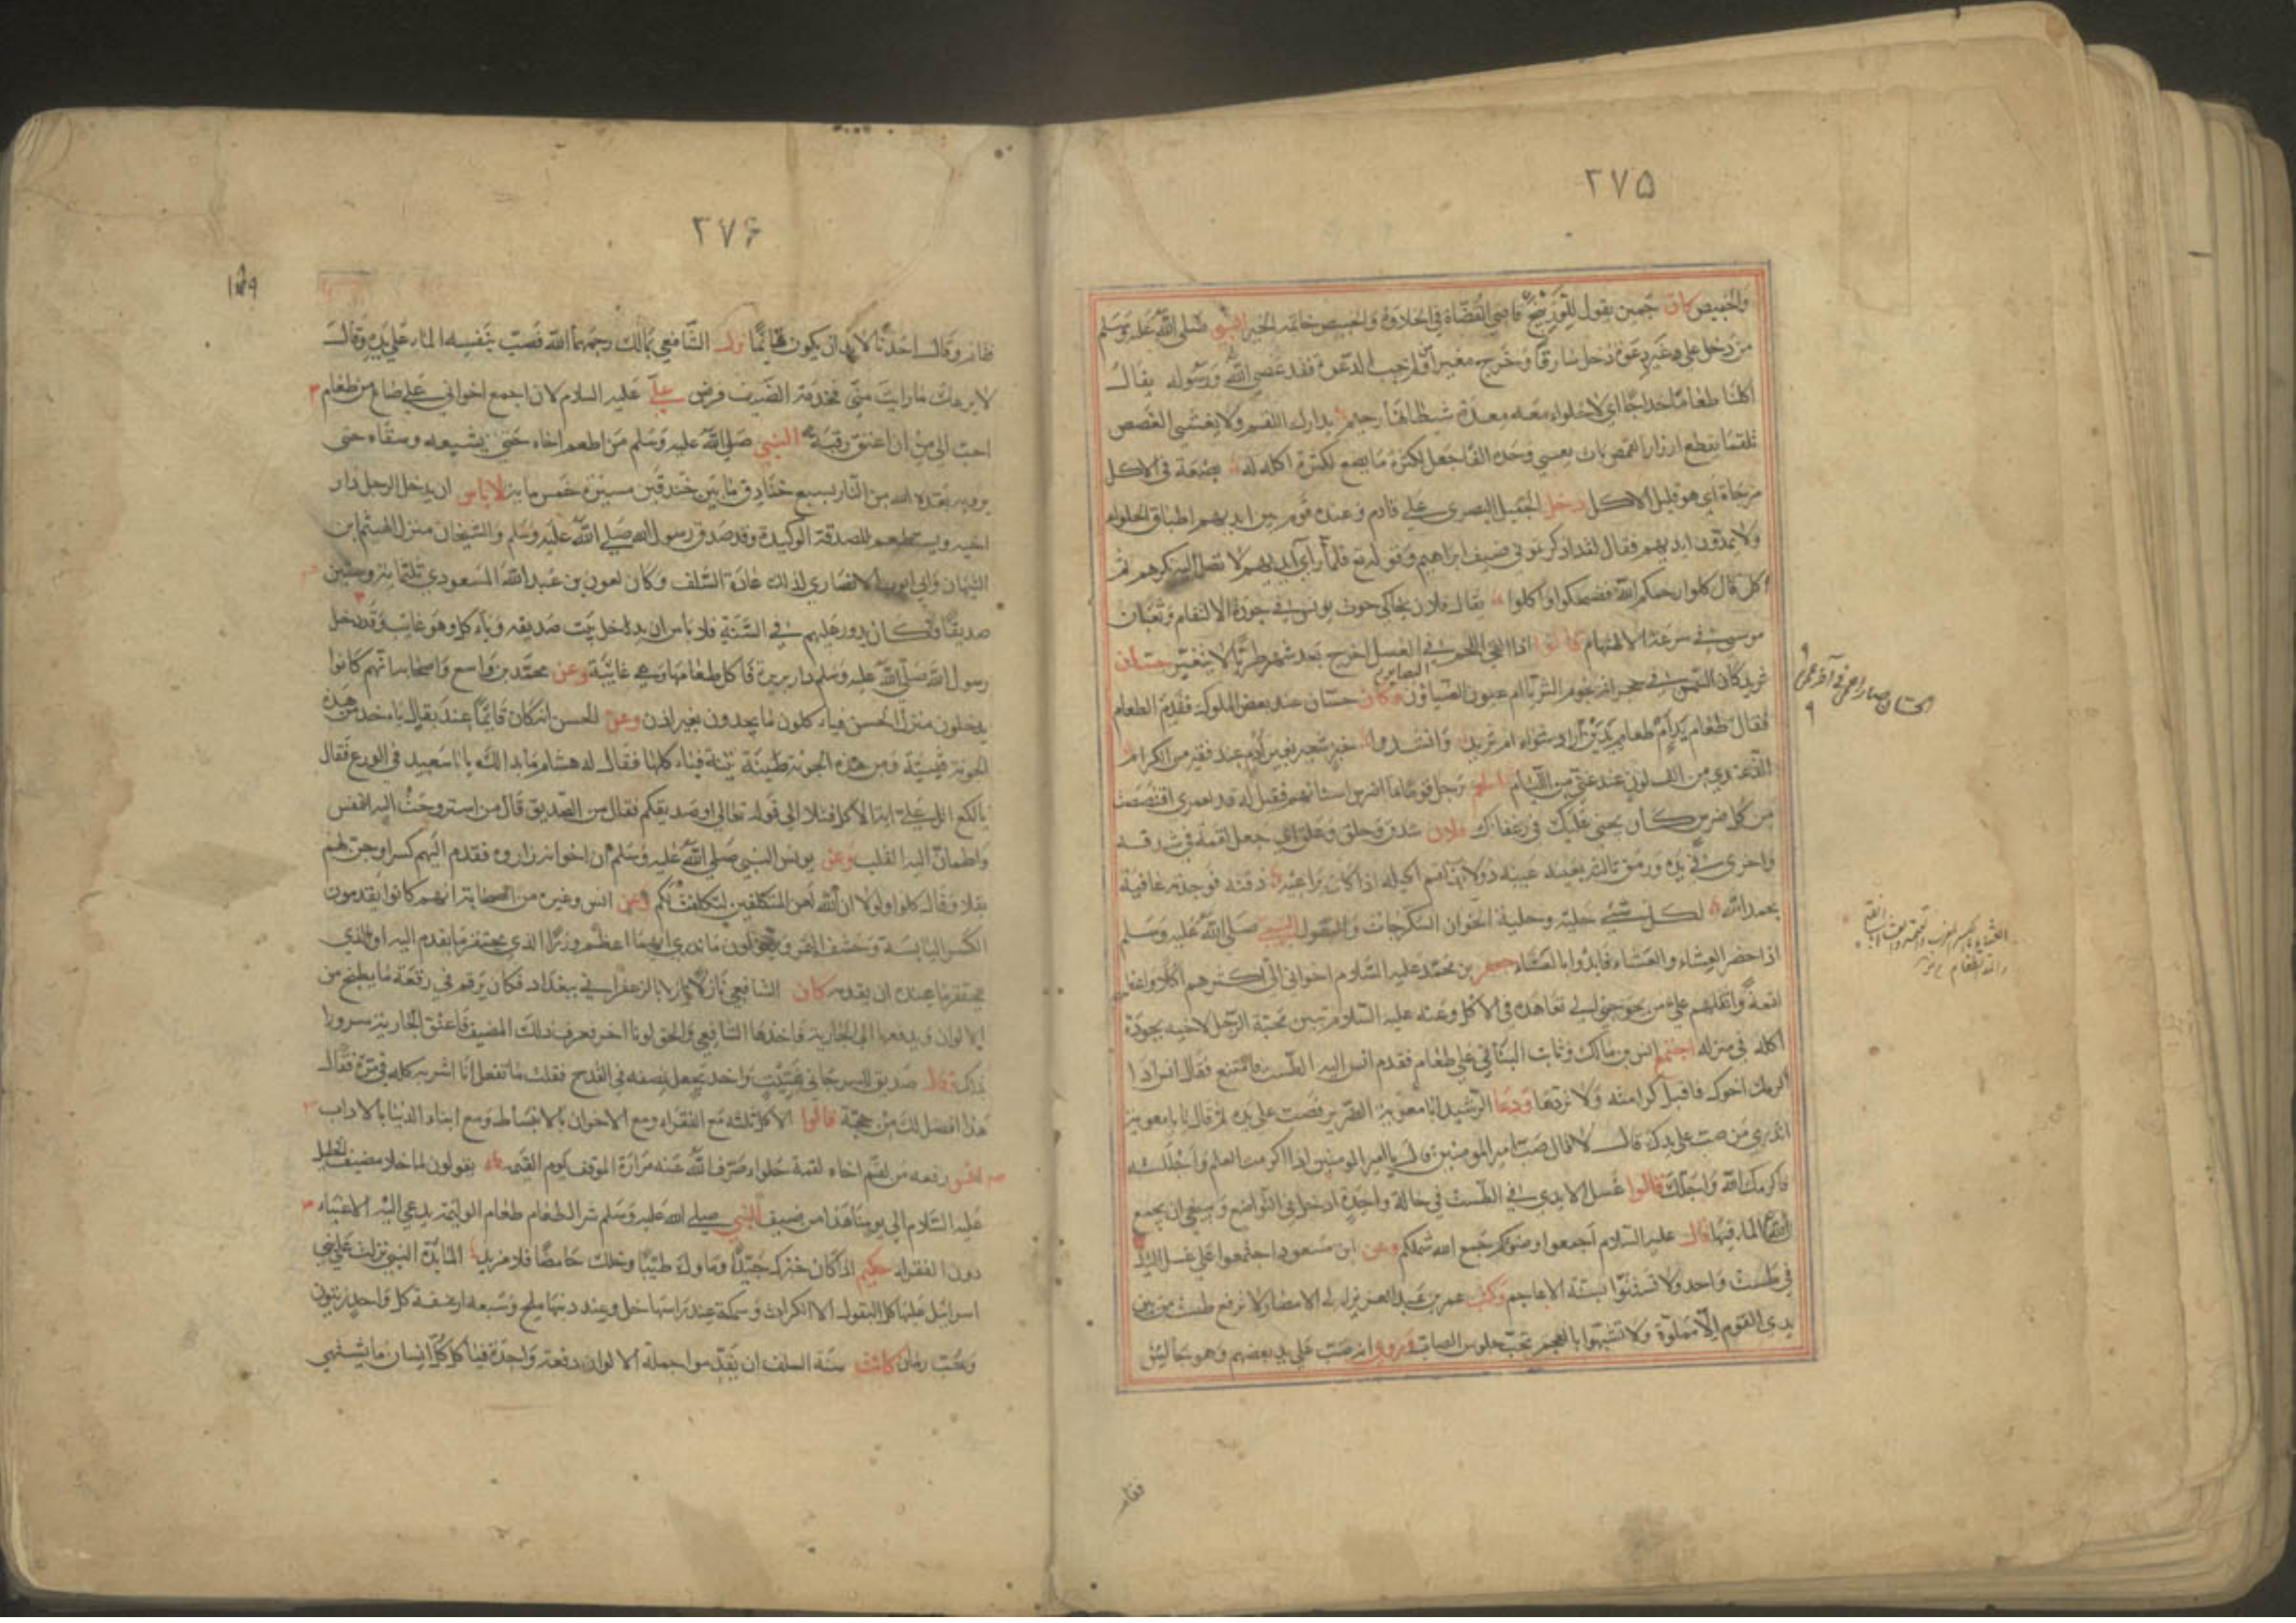 ٢٧۵
والخبيص كان جمين يقول للوزينج قاضي القضاة في الحلاوة والخبيص خاتمه الخير النبي صلى الله عليه وسلم
من دخل على غير دعوة دخل سارقا وخرج مغيرا ولم يجب الدعوة فقد عصى الله ورسوله يقال
اكلنا طعاما خداجا اي لا حلواء معه معدة شيطانها رجيم يدارك اللقم ولا يخشى الغصص
تلقما يقطع ازرار القمص بات يعشي وحده الفا جعل لكثرة ما يضع لكثرة اكله له بضعة في الاكل
مزجاة اي هو قليل الاكل دخل البصري على قادم وعنده قوم بين ايديهم اطباق الحلواء
ولا يمدون ايديهم فقال لقد اذكرتموني ضيف ابراهيم وقوله تع فلما رآى ايديهم لا تصل اليه نكرهم ثم
اكل قال كلوا رحمكم الله فضحكوا واكلوا يقال فلان يحاكي حوت يونس في جودة الالتقام وثعبان
موسى في سرعة الالتهام قالوا اذا القي اللحم في العسل اخرج بعد شهر طريا لا يتغير حسان
ثريد كان الشمس في حجراته نجوم الثريا ام عيون الضياون وكان حسان عند بعض الملوك فقدم الطعام
فقال طعام يد ام طعام يدين اراد شواء ام ثريد وانشدوا خبز شعير بغير ادم عند فقير من الكرام
الذ عندي من الف لون عند غني من اللئام رجل قوما فاضرس اسنانهم فقيل له قد لعمري اقتصصت
من كل ضرس كان يجني عليك في رغفانك فلان شدق وحلق وعلق اي جعل لقمة في شدقه
واخرى في يده ورمق ثالثة بعينه دفنه فوجدته عافية
بحمد الله لكل شيء حلية وحلية الخوان السكرجات والبقول النبي صلى الله عليه وسلم
اذا حضر العشاء والعشاء فابدؤا بالعشاء جعفر بن محمد عليه السلام احب اخواني الي اكثرهم اكلا واعظمهم
لقمة واثقلهم علي من يحوجني الى تعاهده في الاكل وعنه عليه السلام تبين محبة الرجل لاخيه بجودة
اكله في منزله اجتمع انس بن مالك وثابت البناني على طعام فقدم انس اليه الطست فامتنع فقال انس اذا
اكرمك اخوك فاقبل كرامته ولا تردها ودعا الرشيد ابا معوية الضرير فصب على يده ثم قال يابا معوية
اتدري من صب على يدك قال لا قال صب امير المومنين قال يا امير المومنين انما اكرمت العلم واجللته
فاكرمك الله واجلك قالوا غسل الايدي في الطست في حالة واحدة ادخل في التواضع وينبغي ان يجمع
الماء فيها قال عليه السلام اجمعوا وضوكم جمع الله شملكم وعن ابن مسعود اجتمعوا على غسل اليد
في طست واحد ولا تستنوا بسنة الاعاجم وكتب عمر بن عبد العزيز الى الامصار لا ترفع طست من بين
يدي القوم الا مملوة ولا تشبهوا بالعجم جلوس الصاب وروي انه صب على يد بعضهم وهو جالس
فقام
٢٧۶
١٥٩
فقام وقال احدنا لا بد ان يكون قائما نزل الشافعي بمالك رحمهما الله فصب بنفسه الماء على يده وقال
لا يرعك ما رايت مني فخدمة الضيف فرض علي عليه السلام لان اجمع اخواني على صاع من طعام
احب الي من ان اعتق رقبة النبي صلى الله عليه وسلم من اطعم اخاه حتى يشبعه وسقاه حتى
يرويه بعده الله من النار بسبع خنادق ما بين خندقين مسيرة خمس ماية لا باس ان يدخل الرجل دار
اخيه ويستطعم للصدقة الوكيدة وقد صدق رسول الله صلى الله عليه وسلم والشيخان منزل الهيثم ابن
التيهان وابي ايوب الانصاري لذلك عادة السلف وكان لعون بن عبد الله المسعودي ثلثماية وستين
صديقا وكان يدور عليهم في السنة فلا باس ان يدخل بيت صديقه وياكل وهو غائب وقد دخل
رسول الله صلى الله عليه وسلم دار بريرة فاكل طعامها وهي غايبة وعن محمد بن واسع واصحابه انهم كانوا
يدخلون منزل الحسن فياكلون ما يجدون بغير اذن وعن الحسن انه كان قائما عند بقال ياخذ من هذه
الجونة قسبة ومن هذه الجونة تينة فياكلها فقال له هشام ما بدا لك يابا سعيد في الورع فقال
يا لكع اتل علي اية الاكل فتلا الى قوله تعالى او صديقكم فقال من الصديق قال من استروحت اليه النفس
واطمان اليه القلب وعن يونس النبي صلى الله عليه وسلم ان اخوانه زاروه فقدم اليهم كسرا وجز لهم
بقلا وقال كلوا لولا ان الله لعن المتكلفين لتكلفت لكم وعن انس وغيره من الصحابة انهم كانوا يقدمون
الكسر اليابسة وحشف التمر ويقولون ما ندري ايهما اعظم وزرا الذي يحتقر ما يقدم اليه او الذي
يحتقر ما عنده ان يقدمه كان الشافعي نازلا بالزعفراني ببغداد فكان يرقم في رقعة ما يطبخ من
الالوان ويدفعها الى الجارية فاخذها الشافعي والحق لونا اخر فعرف ذلك المضيف فاعتق الجارية سرورا
بذلك قال فقلت ما تفعل انا اشربه كله في مرة فقال
هذا افضل لك من حجة قالوا الاكل ثلثة مع الفقراء ومع الاخوان بالانبساط ومع ابناء الدنيا بالاداب
انس رفعه من لقم اخاه لقمة حلواء صرف الله عنه مرارة الموقف يوم القيمة يقولون لما خلا مضيف الخليل
عليه السلام الى يومنا هذا من ضيف النبي صلى الله عليه وسلم شر الطعام طعام الوليمة يدعى اليه الاغنياء
دون الفقراء حكيم اذا كان خبزك جيدا وماوك طيبا وخلك حامضا فلا مزيد المايدة التي نزلت على بني
اسرائيل عليها كل البقول الا الكراث وسمكة عند راسها خل وعند ذنبها ملح وسبعة ارغفة كل واحد زيتون
وحب رمان كانت سنة السلف ان يقدموا جملة الالوان دفعة واحدة فياكل كل انسان ما يشتهي